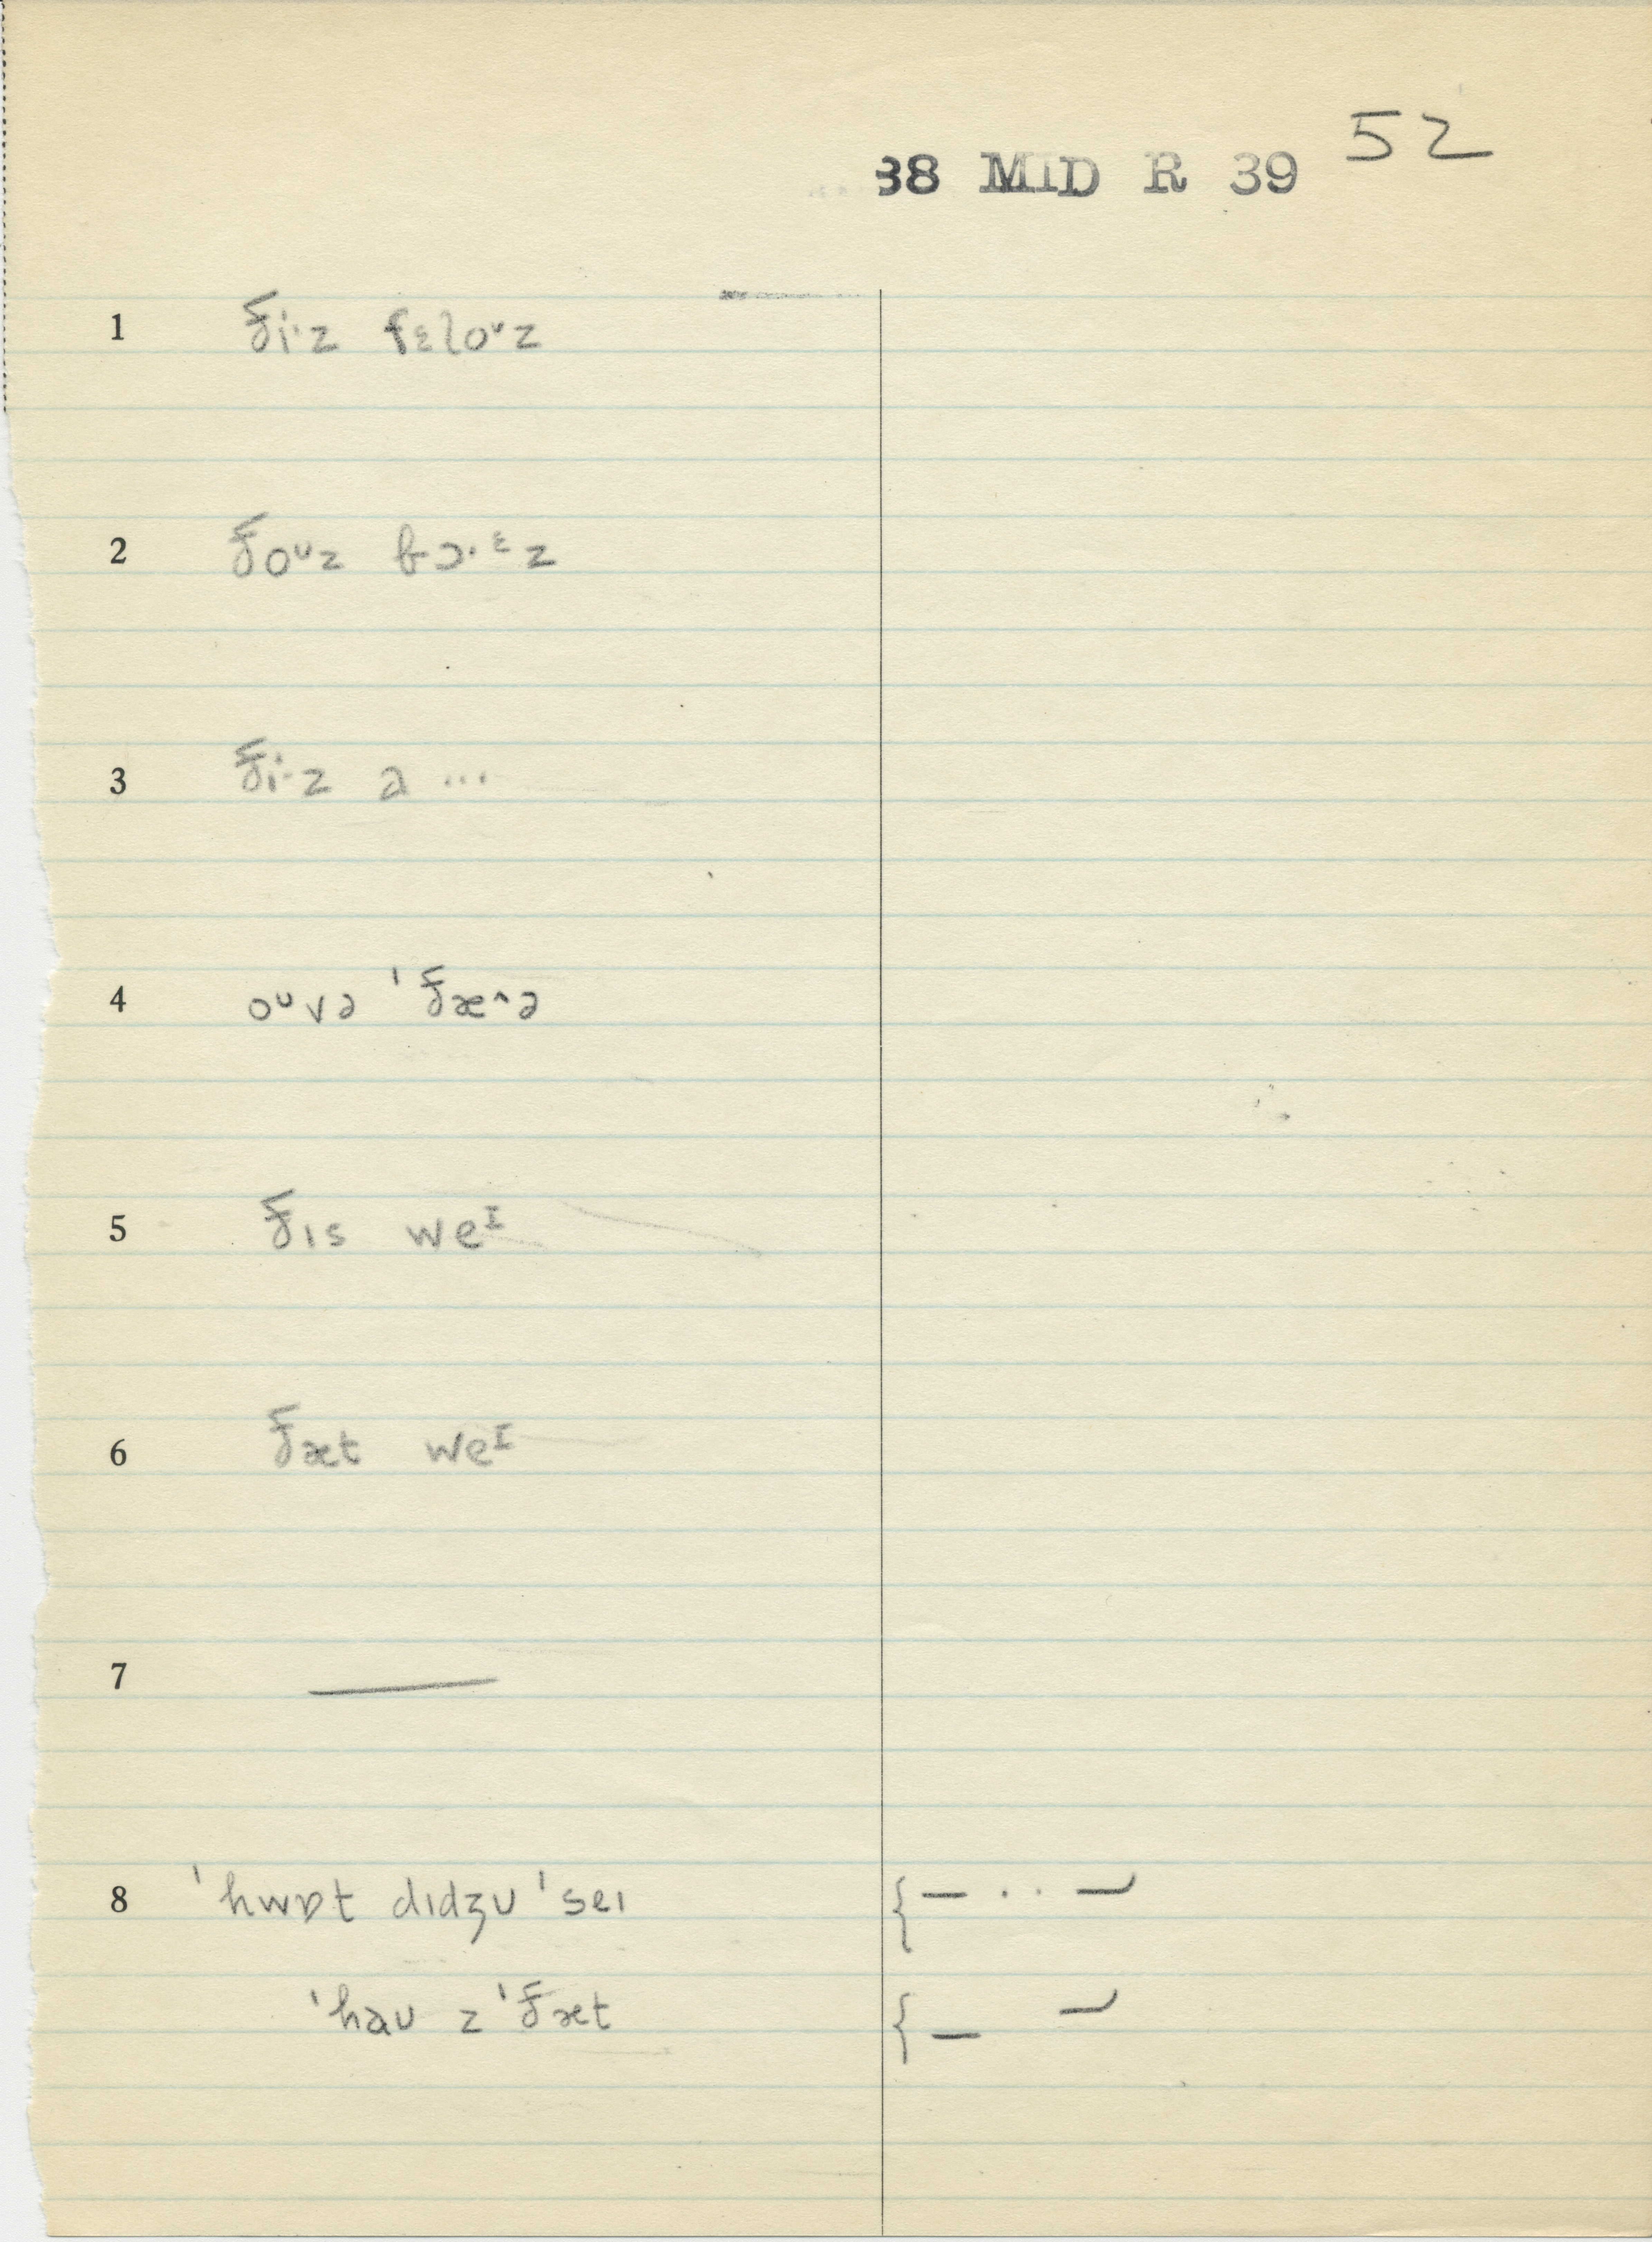 38 MID R 39 52
1 ði·z fɛloᶷz
2 ðoᶷz bɔ·ᵋz
3 ði·z ə ...
4 oᶷvə 'ðæ^ə
5 ðıs weᴵ
6 ðæt weᴵ
7 —
8 'hwɒt dıdʒʊ 'seı { — · · —
'haʊ z 'ðæt { — —